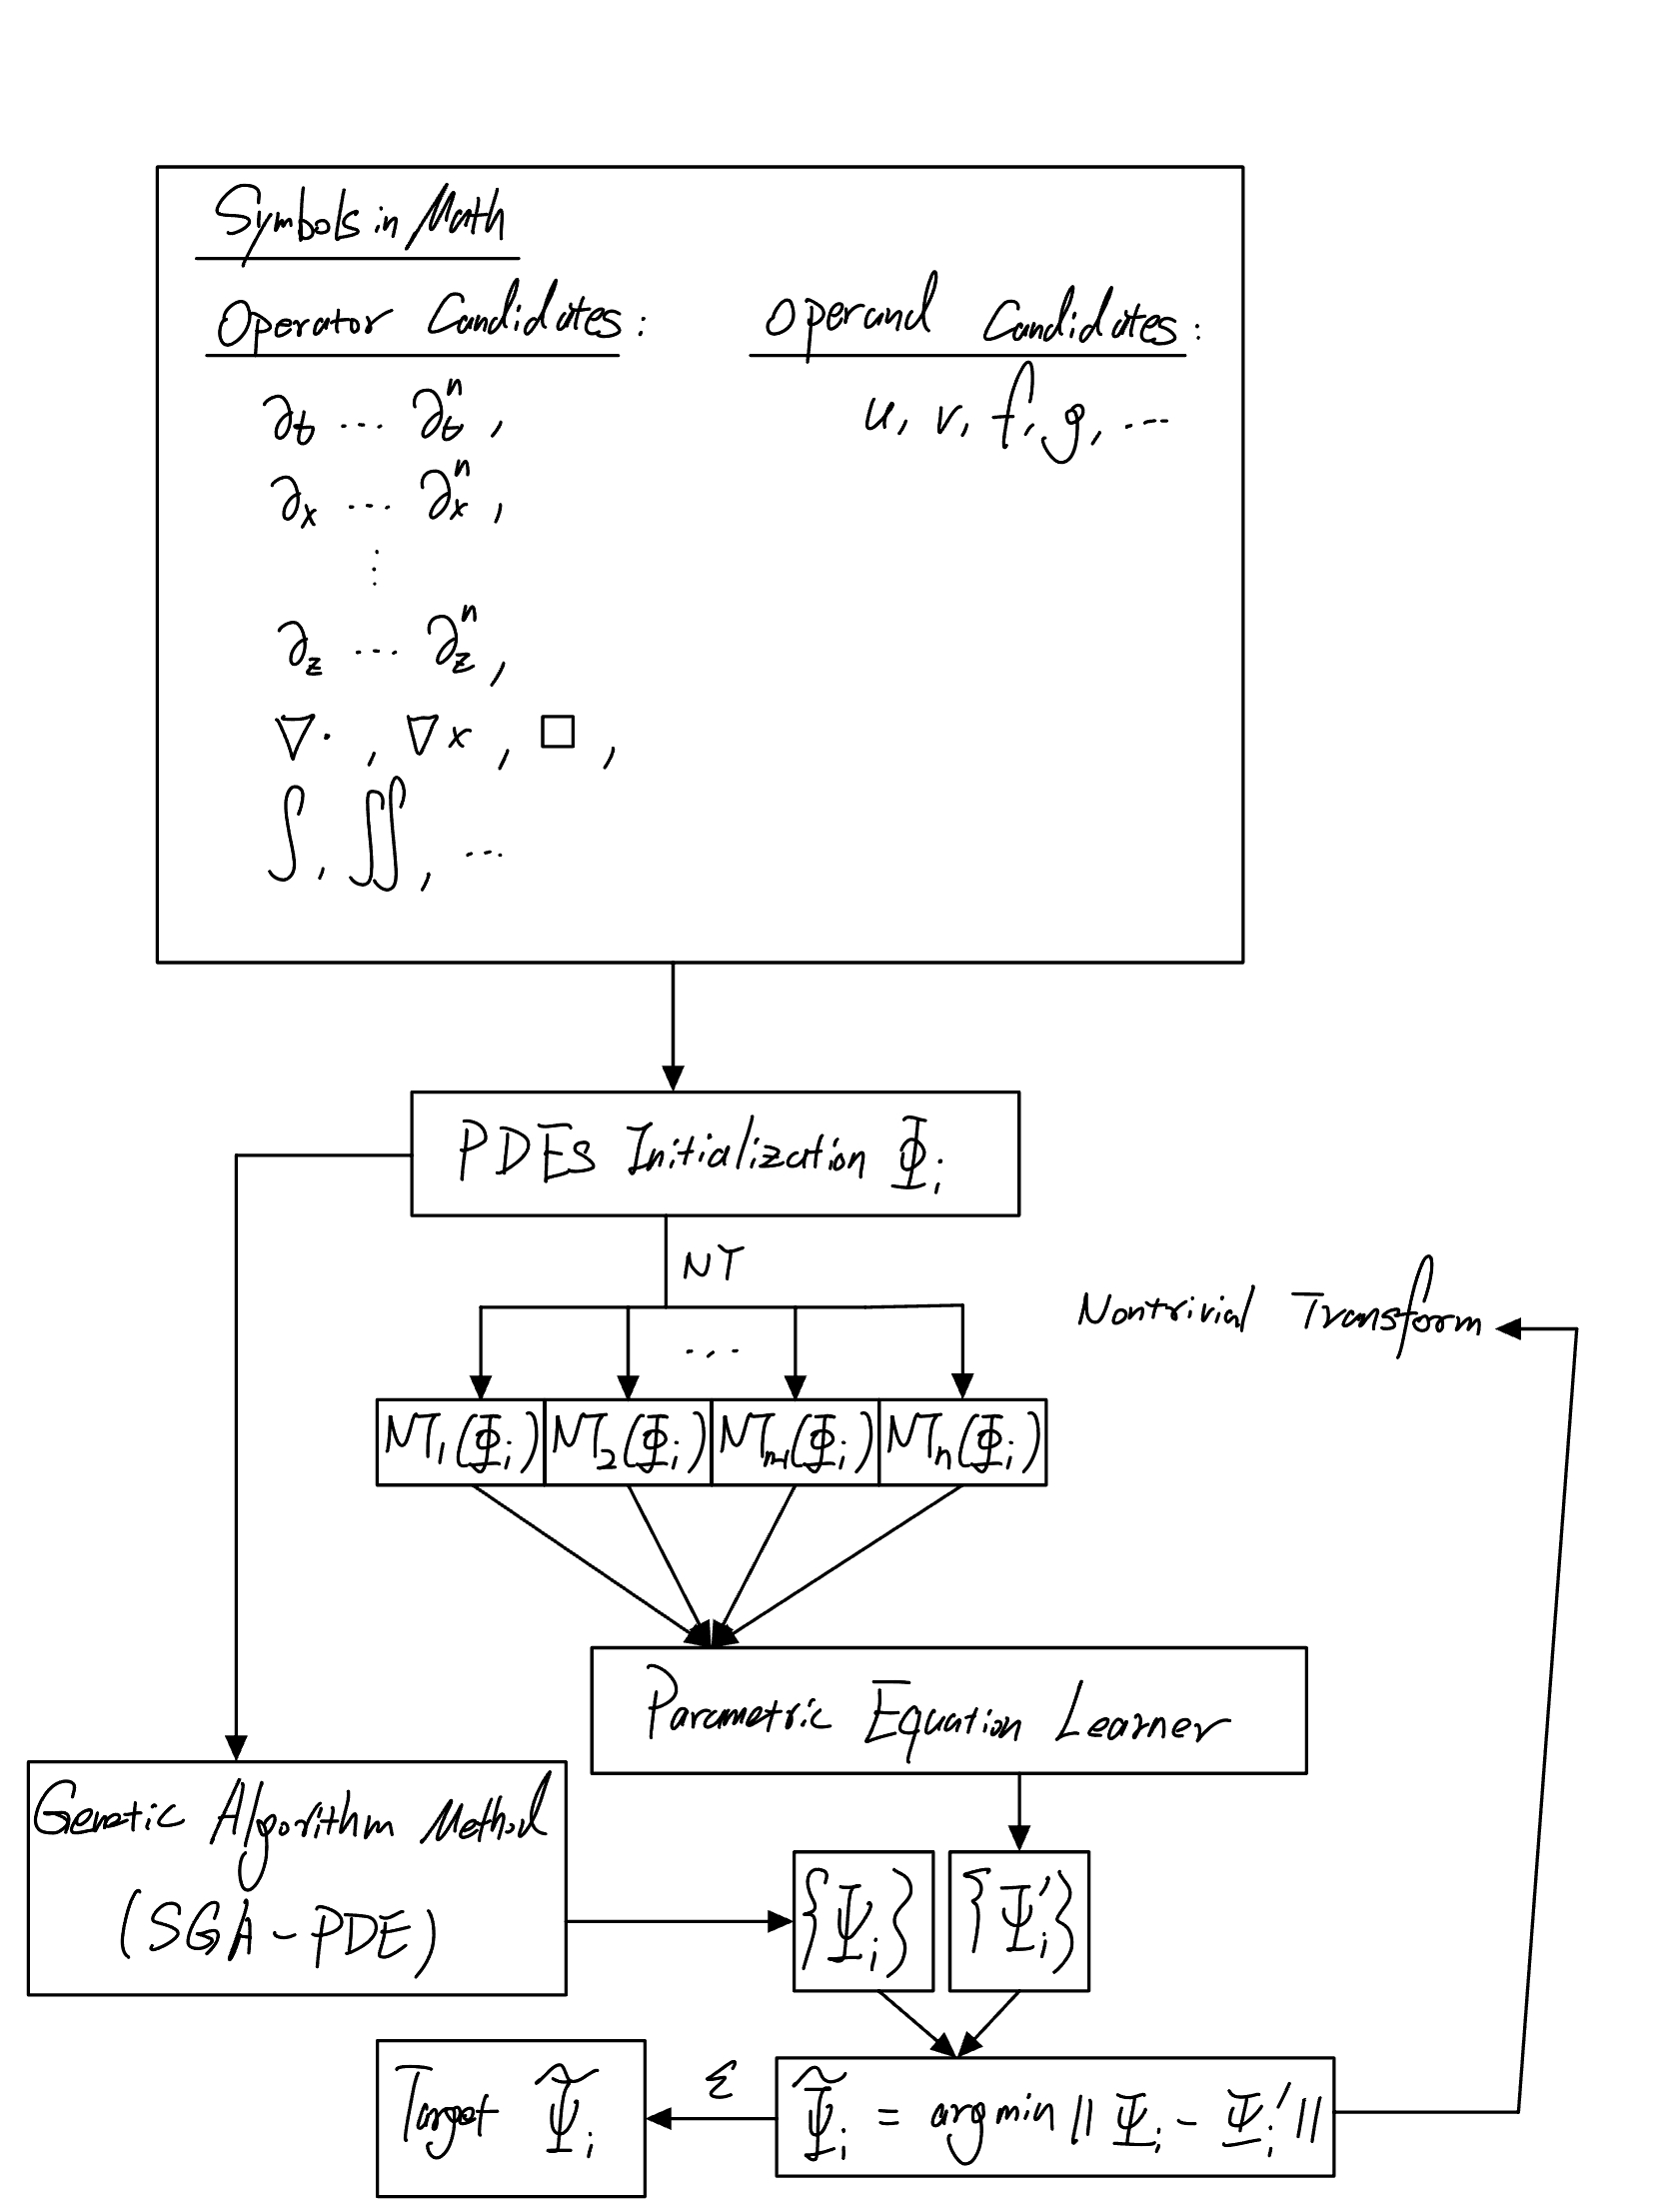 Symbols in Math
Operator Candidates :
Operand Candidates :
∂t ... ∂t^n ,
u, v, f, g, ...
∂x ... ∂x^n ,
⋮
∂z ... ∂z^n ,
∇· , ∇× , □ ,
∫ , ∬ , ...
PDEs Initialization Φi
NT
Nontrivial Transform
...
NT1(Φi) NT2(Φi) NTn-1(Φi) NTn(Φi)
Parametric Equation Learner
Genetic Algorithm Method
(SGA-PDE)
{Ψi} {Ψi'}
Target Ψ̃i
Σ
Ψ̃i = argmin || Ψi - Ψi' ||